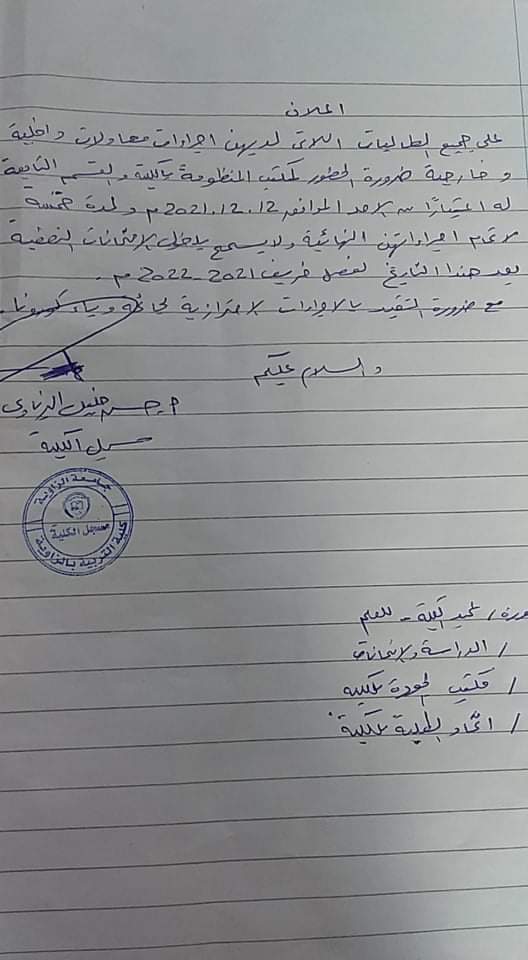 اعلان
على جميع الطالبات اللاتى لديهن اجراءات معادلات داخلية
و خارجية ضرورة الحضور لمكتب المنظومة بالكلية والقسم التابعة
له اعتبارًا من الاحد الموافق 2021.12.12م ولمدة خمسة
لاتمام اجراءاتهن النهائية ولا يسمح بدخول الامتحانات النصفية
بعد هذا التاريخ لفصل خريف 2021-2022م.
مع ضرورة التقيد بالاجراءات الاحترازية لجائحة وباء كورونا.
والسلام عليكم
م. حسن خليل
مسجل الكلية
جامعة الزاوية
مسجل الكلية
كلية التربية بالزاوية
صورة / عميد الكلية - للعلم
/ الدراسة والامتحانات
/ مكتب الجودة بالكلية
/ اتحاد الطلبة بالكلية